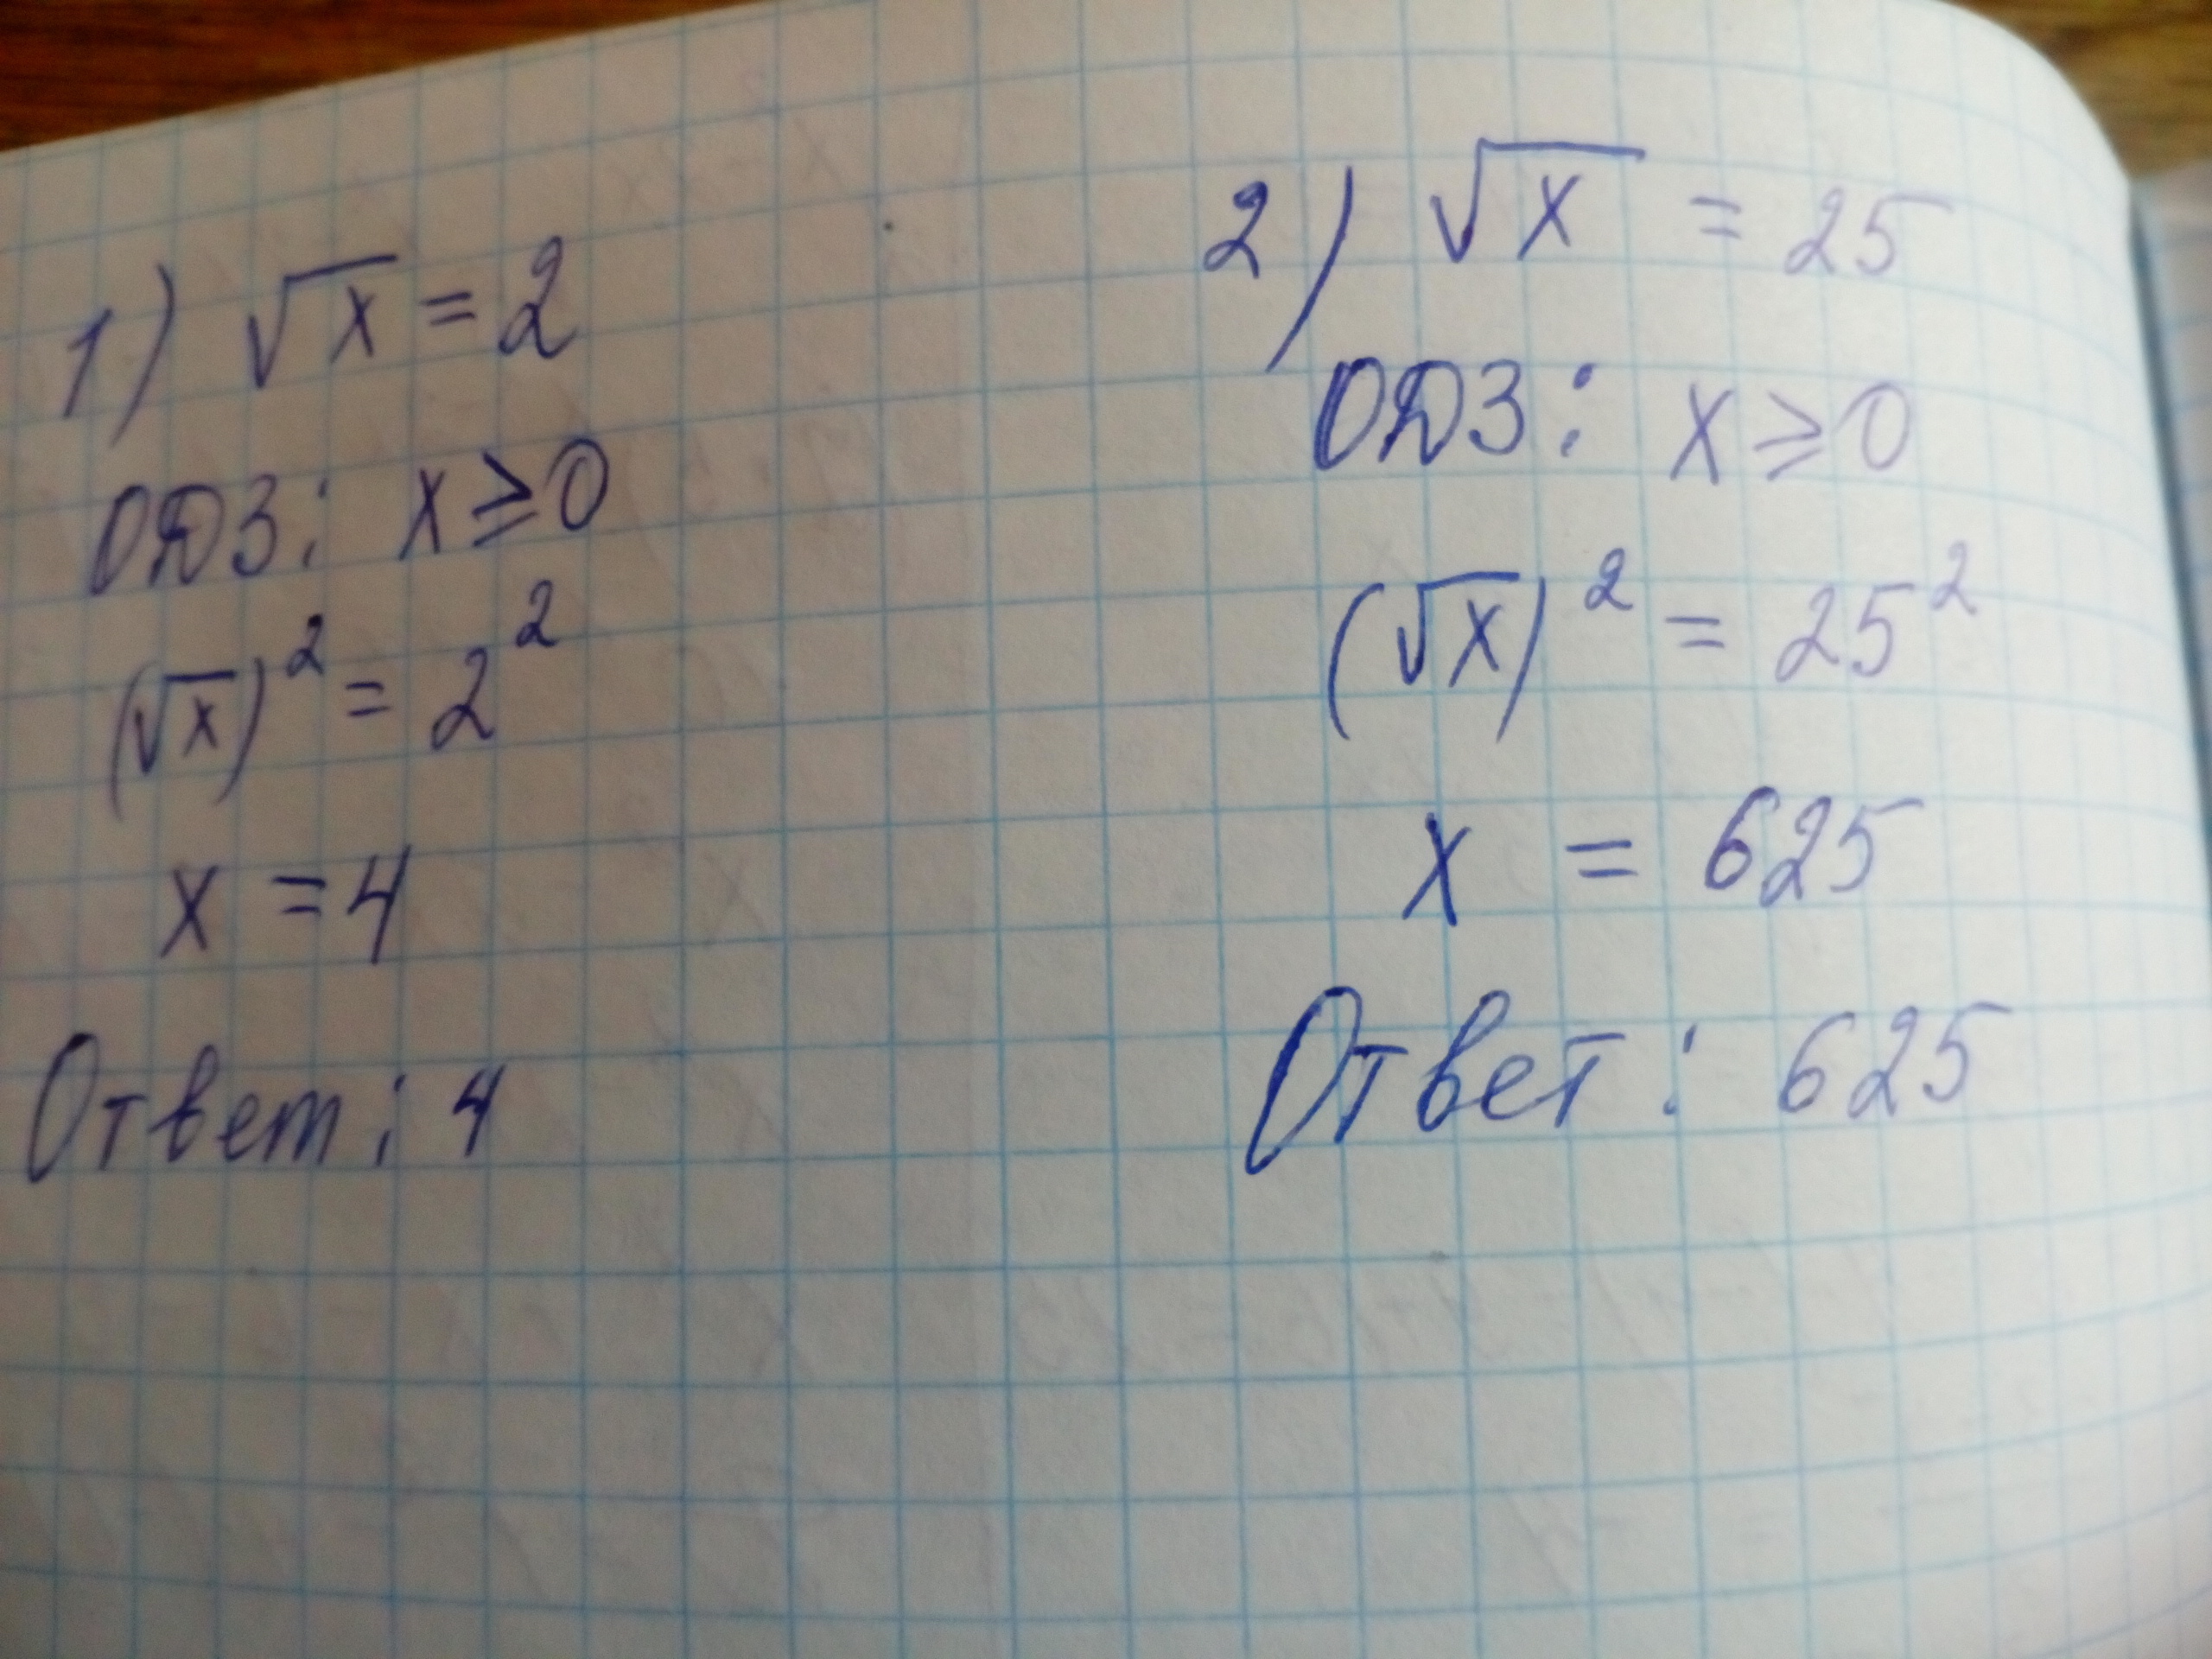 1) √x = 2
ОДЗ: x ≥ 0
(√x)² = 2²
x = 4
Ответ: 4
2) √x = 25
ОДЗ: x ≥ 0
(√x)² = 25²
x = 625
Ответ: 625